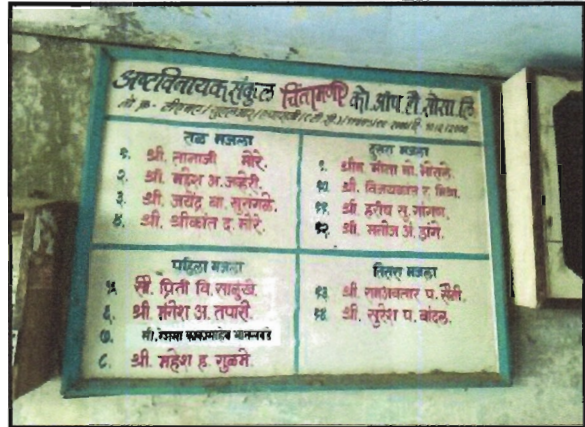 अष्टविनायक संकुल चिंतामणी को. ऑप. हौ. सोसा. लि.
तळ मजला
१. श्री. तानाजी मोरे.
२. श्री. महेश अ. जव्हेरी.
३. श्री. जयेंद्र वा. सुरागळे.
४. श्री. श्रीकांत द. मोरे.
पहिला मजला
५. सौ. प्रिती वि. साळुंखे.
६. श्री. मंगेश अ. तपारी.
७.
८. श्री. महेश ह. गुळमे.
दुसरा मजला
९. श्रीम. मीता बा. भोसले.
१०. श्री. विजयकांत र. मिश्रा.
११. श्री. हरीष सु. गांगण.
१२. श्री. मनोज अ. डांगे.
तिसरा मजला
१३. श्री. रामअवतार प. सैनी.
१४. श्री. सुरेश प. बांदल.